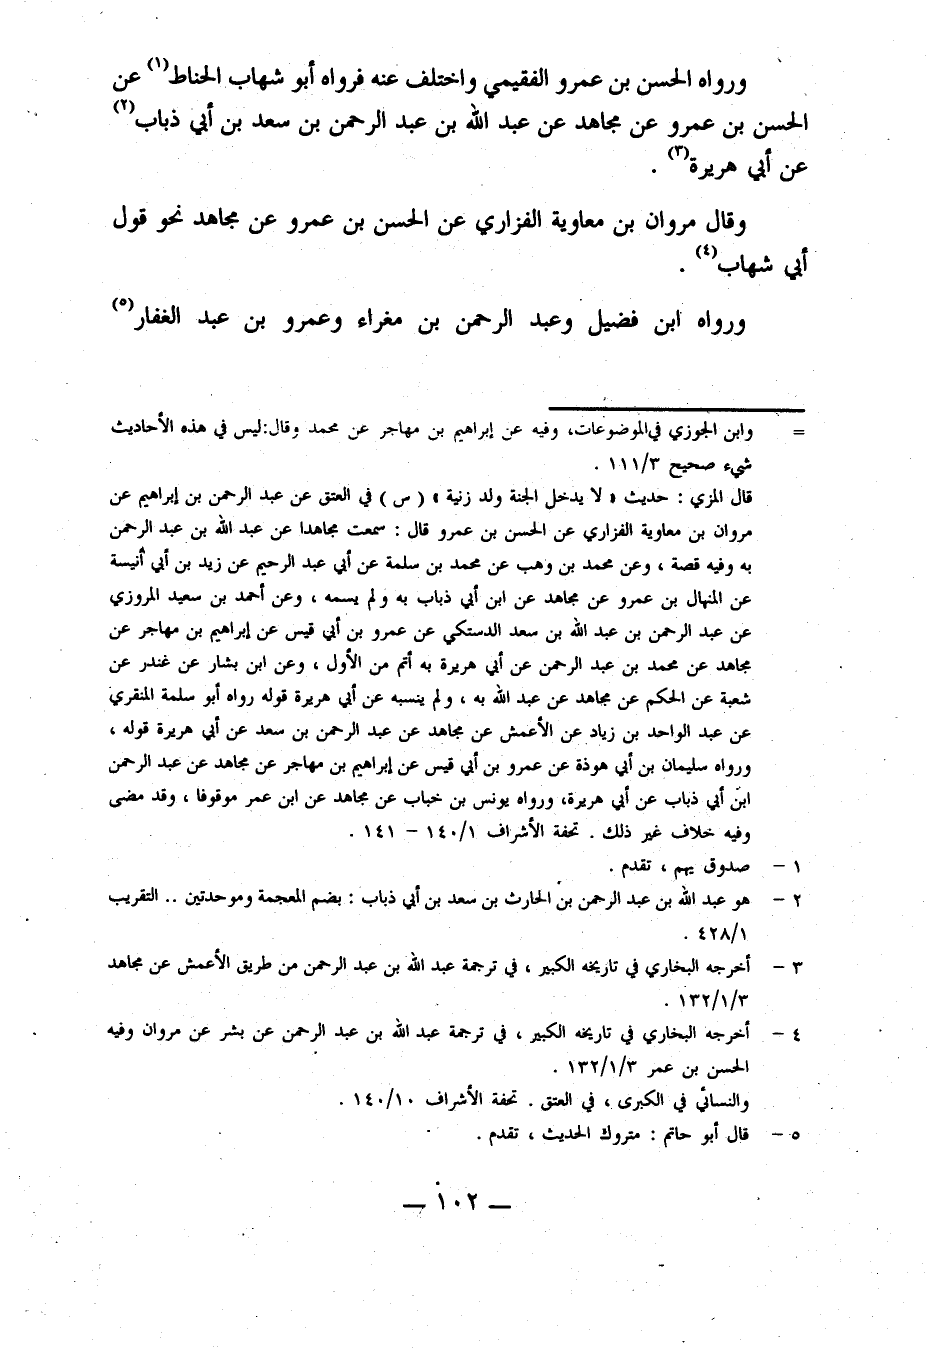 ورواه الحسن بن عمرو الفقيمي واختلف عنه فرواه أبو شهاب الحناط(١) عن
الحسن بن عمرو عن مجاهد عن عبد الله بن عبد الرحمن بن سعد بن أبي ذباب(٢)
عن أبي هريرة(٣) .
وقال مروان بن معاوية الفزاري عن الحسن بن عمرو عن مجاهد نحو قول
أبي شهاب(٤) .
ورواه ابن فضيل وعبد الرحمن بن مغراء وعمرو بن عبد الغفار(٥)
= وابن الجوزي في الموضوعات، وفيه عن إبراهيم بن مهاجر عن محمد وقال: ليس في هذه الأحاديث
شيء صحيح ١١١/٣ .
قال المزي : حديث « لا يدخل الجنة ولد زنية » ( س ) في العتق عن عبد الرحمن بن إبراهيم عن
مروان بن معاوية الفزاري عن الحسن بن عمرو قال : سمعت مجاهدا عن عبد الله بن عبد الرحمن
به وفيه قصة ، وعن محمد بن وهب عن محمد بن سلمة عن أبي عبد الرحيم عن زيد بن أبي أنيسة
عن المنهال بن عمرو عن مجاهد عن ابن أبي ذباب به ولم يسمه ، وعن أحمد بن سعيد المروزي
عن عبد الرحمن بن عبد الله بن سعد الدستكي عن عمرو بن أبي قيس عن إبراهيم بن مهاجر عن
مجاهد عن محمد بن عبد الرحمن عن أبي هريرة به أتم من الأول ، وعن ابن بشار عن غندر عن
شعبة عن الحكم عن مجاهد عن عبد الله به ، ولم ينسبه عن أبي هريرة قوله رواه أبو سلمة المنقري
عن عبد الواحد بن زياد عن الأعمش عن مجاهد عن عبد الرحمن بن سعد عن أبي هريرة قوله ،
ورواه سليمان بن أبي هوذة عن عمرو بن أبي قيس عن إبراهيم بن مهاجر عن مجاهد عن عبد الرحمن
ابن أبي ذباب عن أبي هريرة، ورواه يونس بن خباب عن مجاهد عن ابن عمر موقوفا ، وقد مضى
وفيه خلاف غير ذلك . تحفة الأشراف ١٤٠/١ – ١٤١ .
١ – صدوق يهم ، تقدم .
٢ – هو عبد الله بن عبد الرحمن بن الحارث بن سعد بن أبي ذباب : بضم المعجمة وموحدتين .. التقريب
٤٢٨/١ .
٣ – أخرجه البخاري في تاريخه الكبير ، في ترجمة عبد الله بن عبد الرحمن من طريق الأعمش عن مجاهد
١٣٢/١/٣ .
٤ – أخرجه البخاري في تاريخه الكبير ، في ترجمة عبد الله بن عبد الرحمن عن بشر عن مروان وفيه
الحسن بن عمر ١٣٢/١/٣ .
والنسائي في الكبرى ، في العتق . تحفة الأشراف ١٤٠/١٠ .
٥ – قال أبو حاتم : متروك الحديث ، تقدم .
— ١٠٢ —